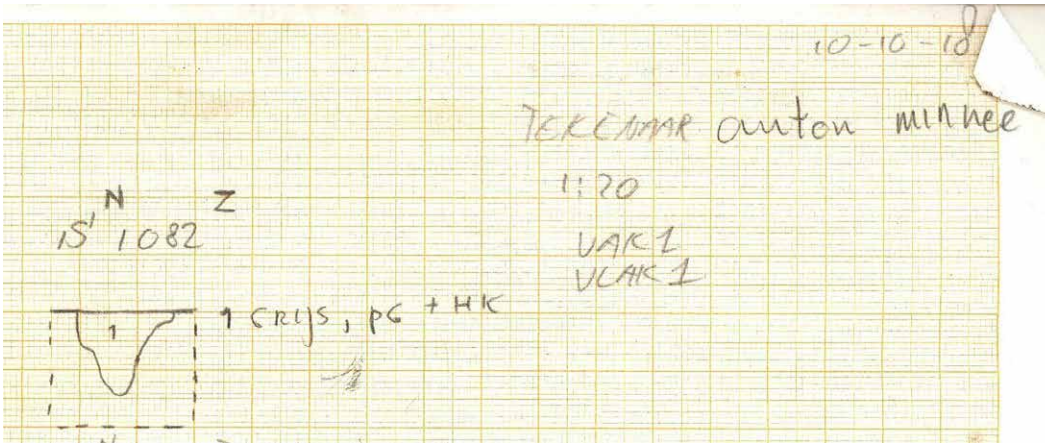 10-10-18
TEKENAAR anton minnee
1:20
VAK 1
VLAK 1
N Z
1082
1
1 GRIJS, PG + HK
N